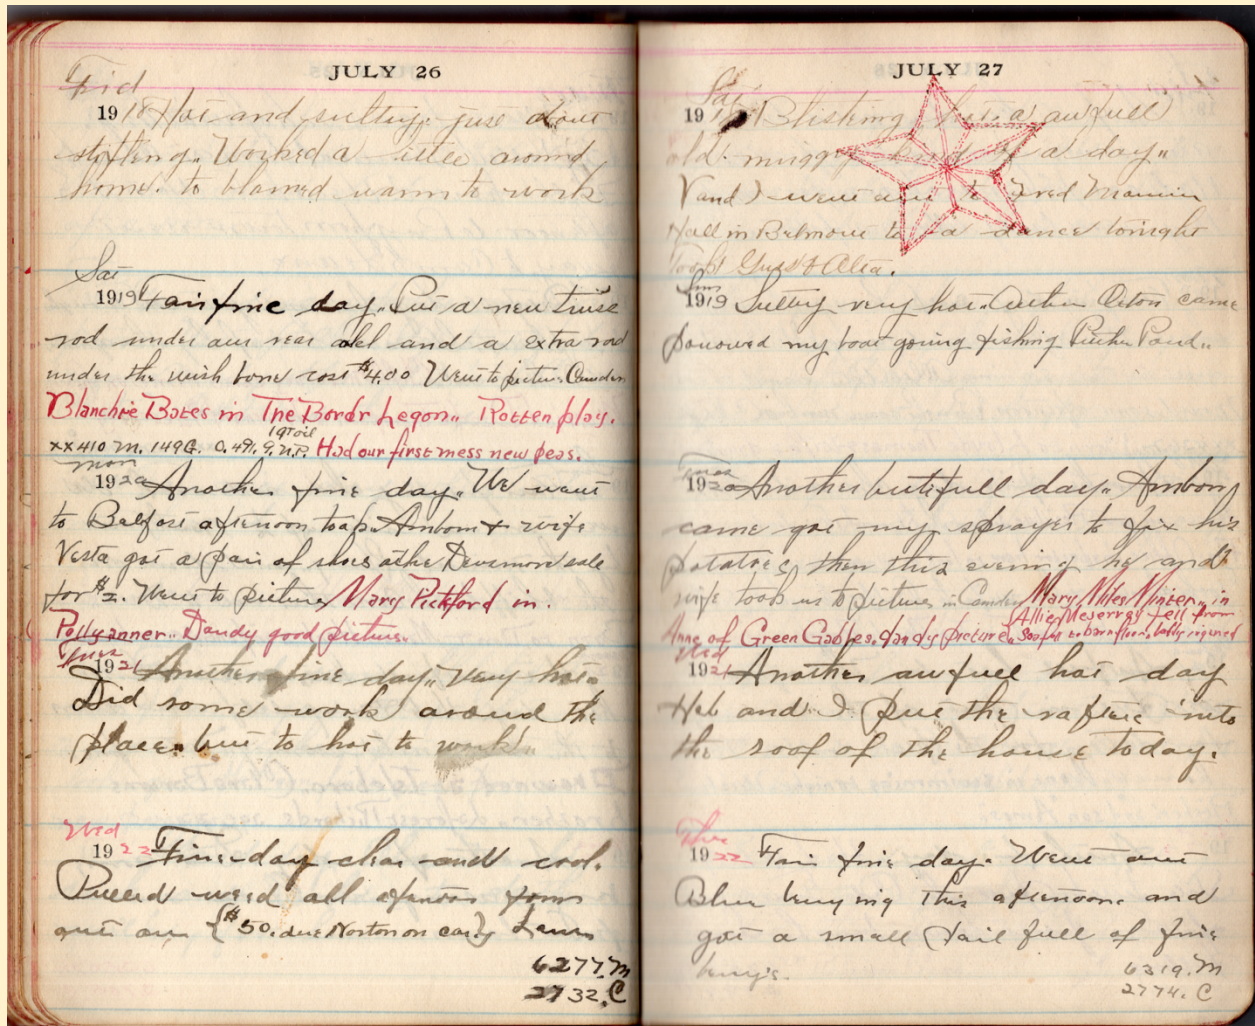 JULY 26
Frid
1918 Hot and sultry. just about
stifling. Worked a little around
home. to blamed warm to work
Sat
1919 Fair fine day. Put a new truss
rod under our rear axel and a extra rod
under the wish bone cost $4.00 Went to picture Camden
Blanchie Bates in The Bordr Legon.. Rotten play.
19T oil
xx410 M. 149G. O. 491. 9. N.P. Had our first mess new peas.
Mon
1920 Another fine day. We went
to Belfast afternoon to a p. Ambom & wife
Vesta got a pair of shoes at the Dinsmore sale
for $2. Went to picture Mary Pickford in.
Pollyanner.. Dandy good picture.
Tues
1921 Another fine day.. very hot.
Did some work around the
place. but to hot to work..
Wed
1922 Fine day clear and cool.
Pulled weed all afternoon from
out our {$50. due Norton on car} Lawn
6277. M
2732. C
JULY 27
Sat
1918 Blistring hot. a awfull
old. muggy kind of a day..
V and I went out to Fred
Hall in Belmont to a dance tonight
Took Guss & Alta.
Sun
1919 Sultry very hot. Orton came
borrowed my boat going fishing Pond..
Tues
1920 Another butifull day. Ambom
came got my sprayer to fix his
potatoes, then this evening he and
wife took us to picture in Camden Mary Miles Minter.. in
Allie Mcserrvy fell from
Anne of Green Gables. dandy picture. to barn floor, badly injured
Wed
1921 Another awfull hot day
Heb and I put the rafters into
the roof of the house today.
Thur
1922 Fair fine day. Went out
Blue berrying this afternoon. and
got a small pail full of fine
berry's.
6319. M
2774. C